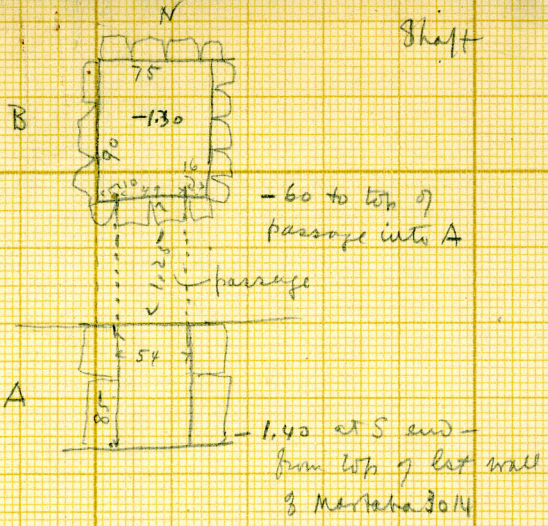 N
Shaft
75
B
-1.30
90
16
- 60 to top of
passage into A
1.25
passage
54
A
85
- 1.40 at S end -
from top of last wall
of Mastaba 3014